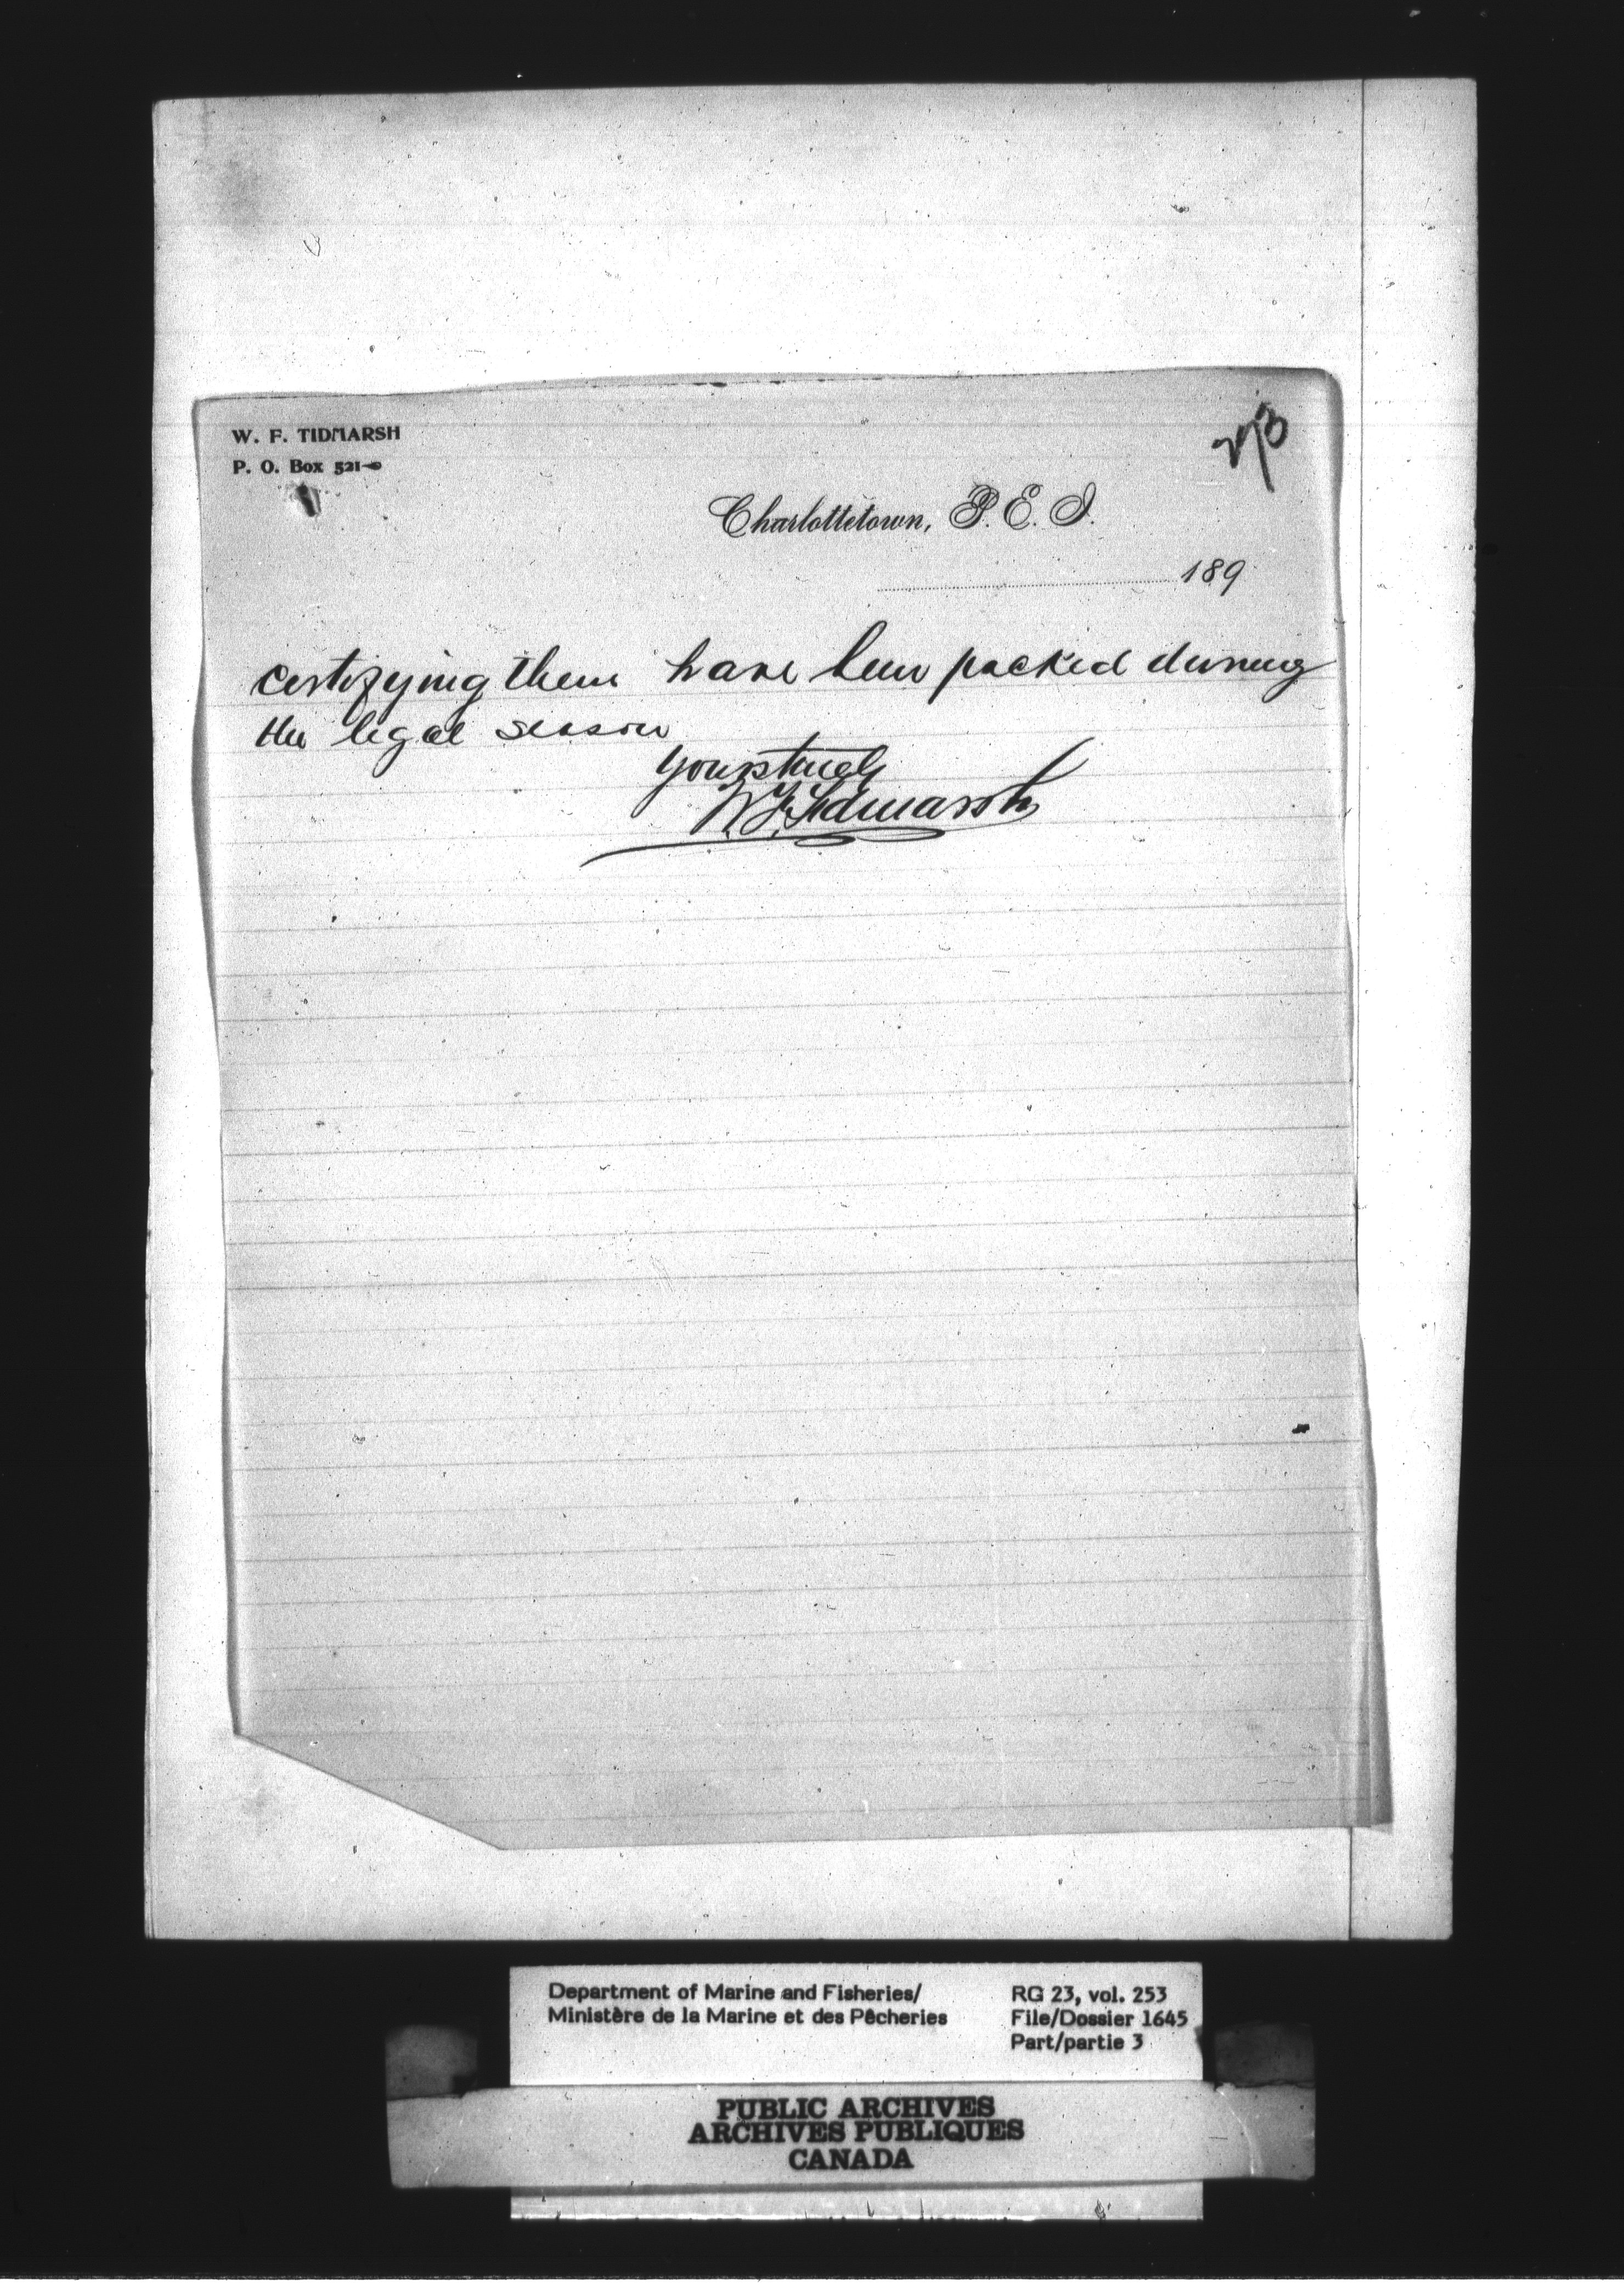 W. F. TIDMARSH
P. O. Box 521
Charlottetown, P. E. I.
189
certifying them have been packed during
the legal season
Yours truly
W. F. Tidmarsh
Department of Marine and Fisheries/
Ministère de la Marine et des Pêcheries
RG 23, vol. 253
File/Dossier 1645
Part/partie 3
PUBLIC ARCHIVES
ARCHIVES PUBLIQUES
CANADA